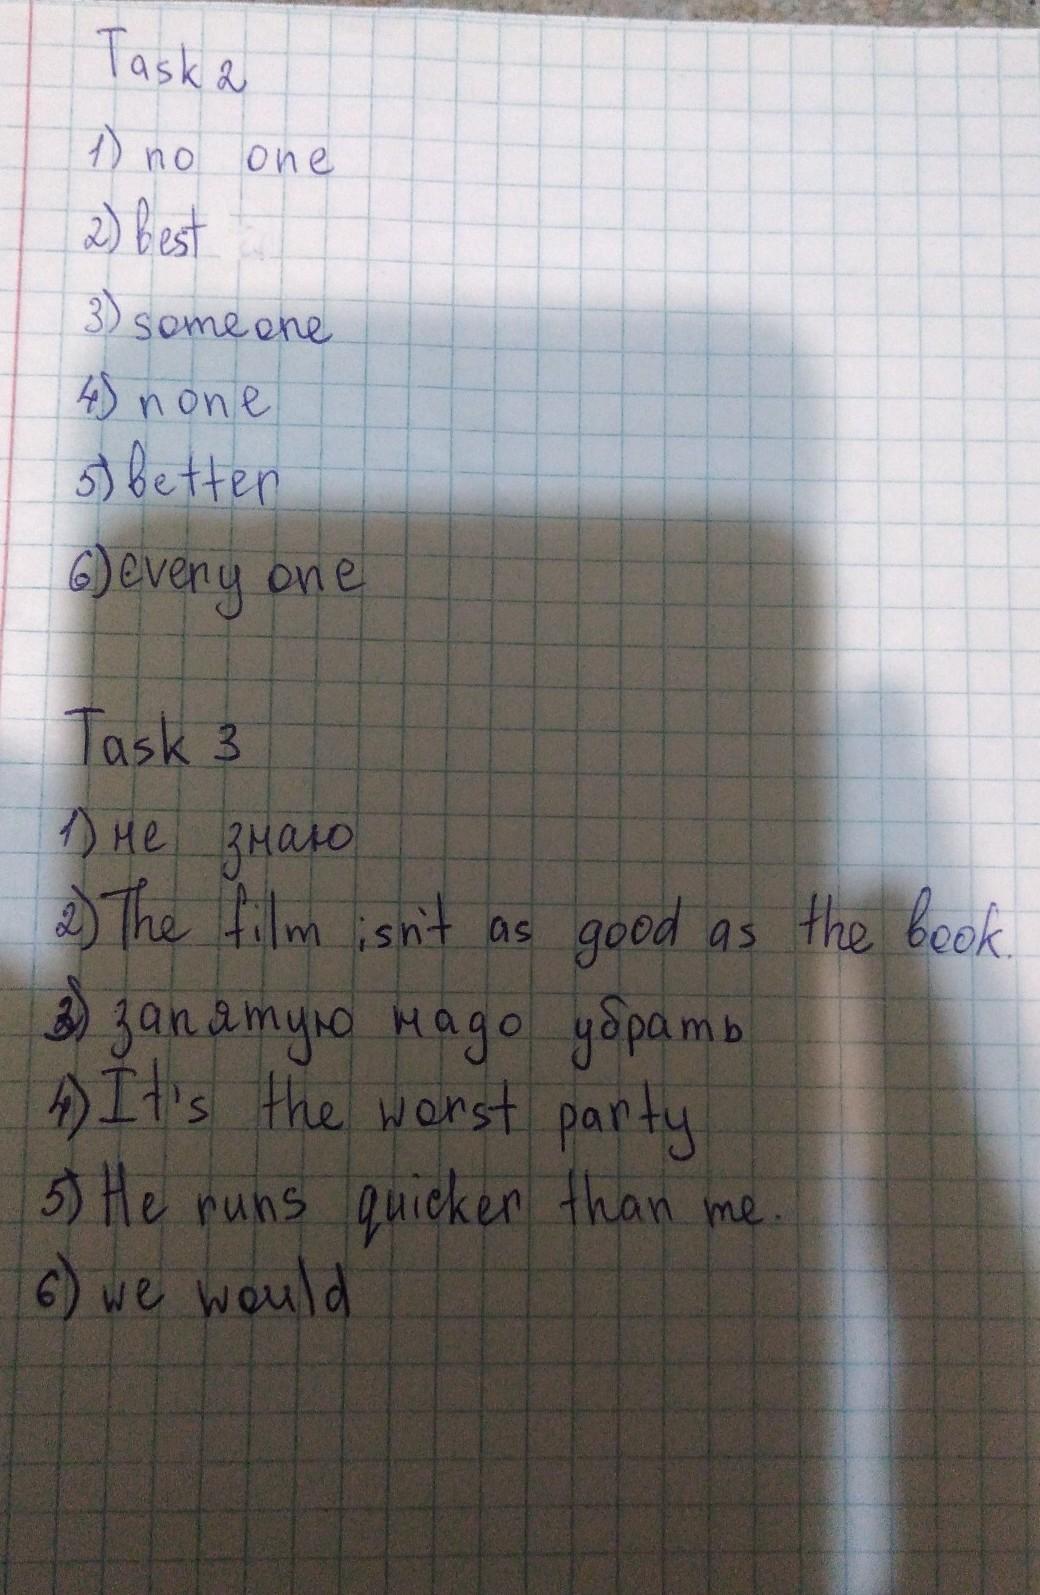 Task 2
1) no one
2) best
3) someone
4) none
5) better
6) every one
Task 3
1) не знаю
2) The film isn't as good as the book.
3) запятую надо убрать
4) It's the worst party
5) He runs quicker than me.
6) we would